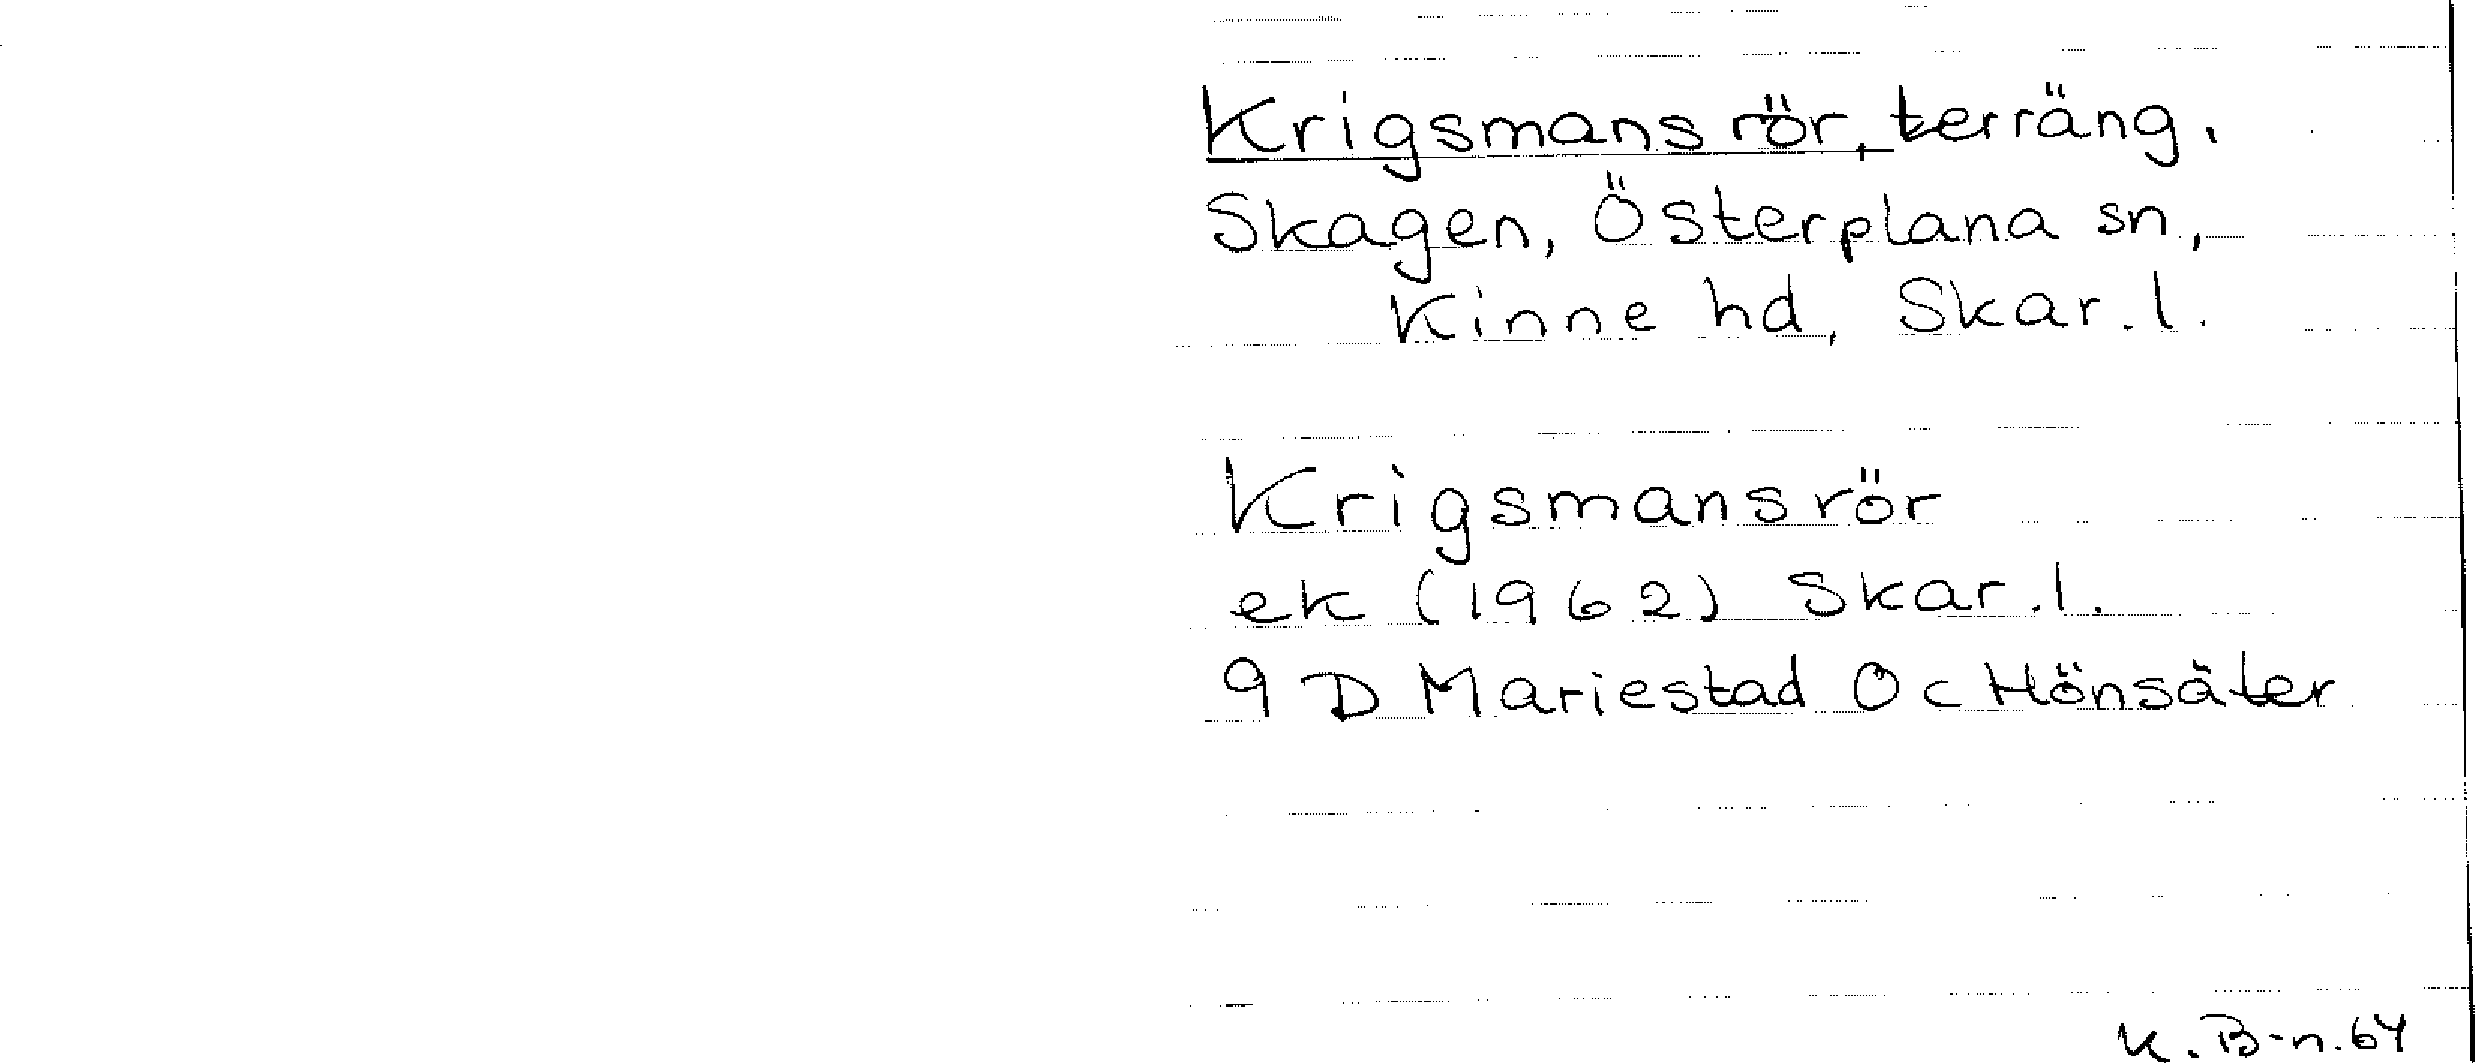 Krigsmansrör, terräng.
Skagen, Österplana sn,
Kinne hd, Skar. l.
Krigsmansrör
ek (1962) Skar. l.
9 D Mariestad 0 c Hönsäter
K. B-n. 64